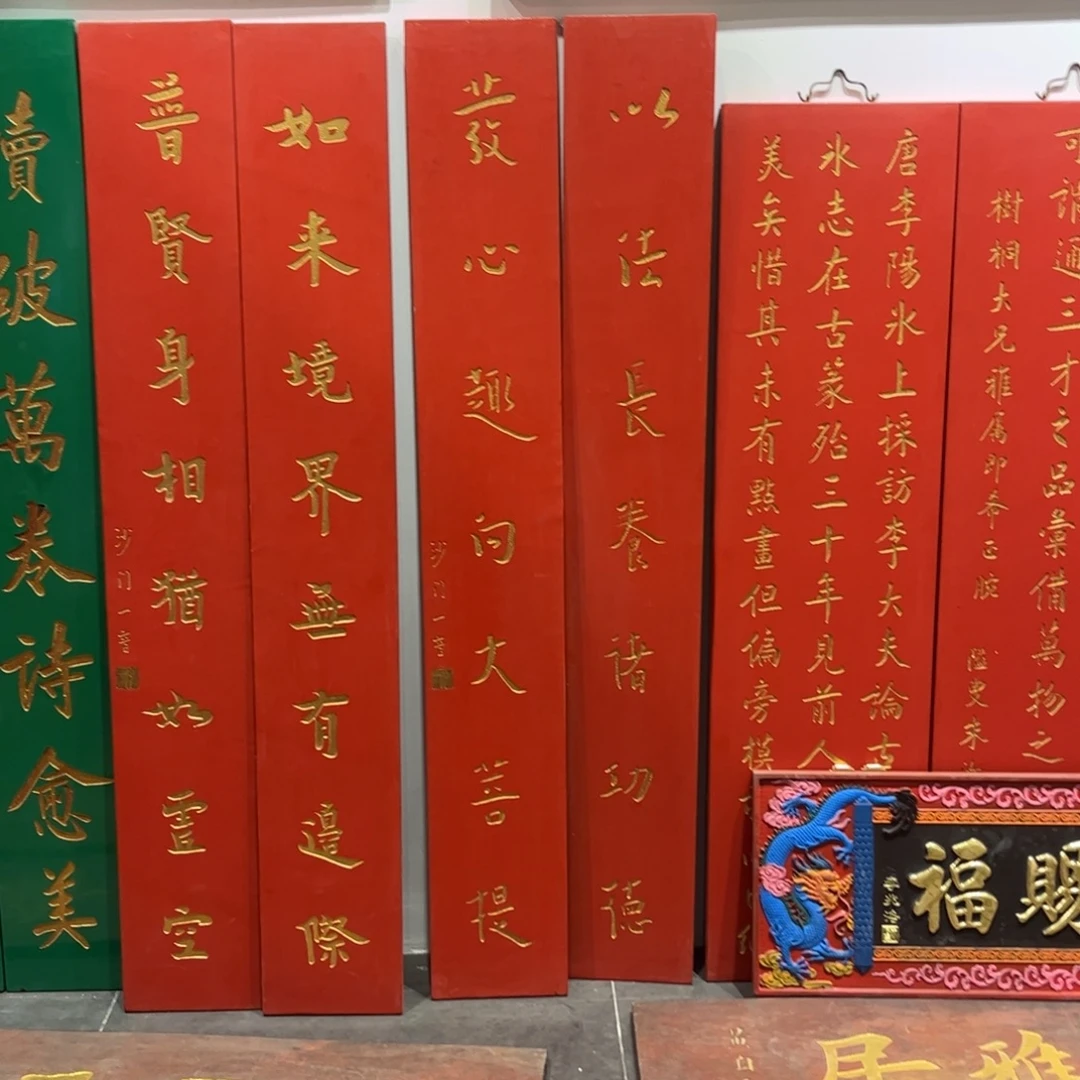 可謂通三才之品彙備萬物之
樹桐大兄雅属即希正腕
唐李陽氷上採訪李大夫論古
氷志在古篆殆三十年見前人
美矣惜其未有點畫但偏旁摸
以法長養諸功德
發心趣向大菩提
沙门一音
如来境界無有邊際
普賢身相猶如虛空
沙门一音
讀破萬卷詩愈美
賜福
雅居